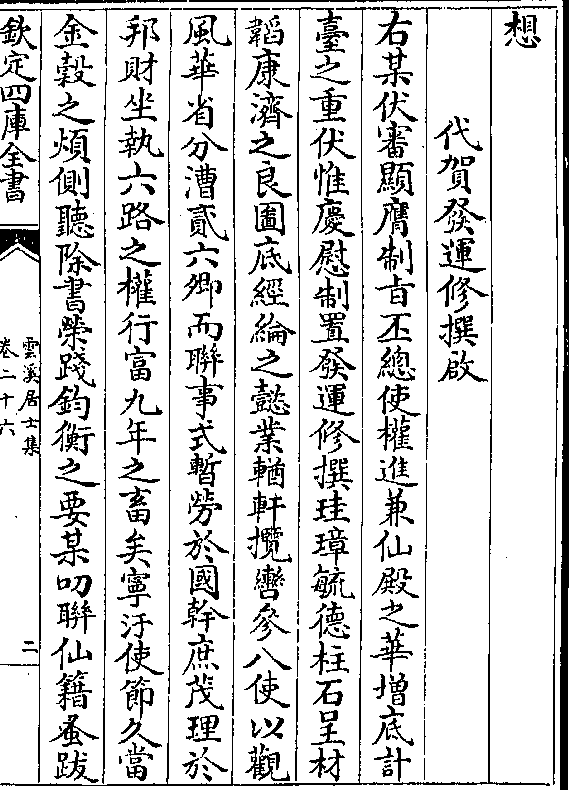 想
代賀發運修撰啟
右某伏審顯膺制旨丕總使權進兼仙殿之華增底計
臺之重伏惟慶慰制置發運修撰珪璋毓德柱石呈材
韜康濟之良圖底經綸之懿業輶軒攬轡參八使以觀
風華省分漕貳六卿而聯事式暫勞於國幹庶茂理於
邦財坐執六路之權行富九年之畜矣寧汙使節久當
金穀之煩側聽除書榮踐鈞衡之要某叨聯仙籍蚤跋
欽定四庫全書
雲溪居士集
卷二十六
二